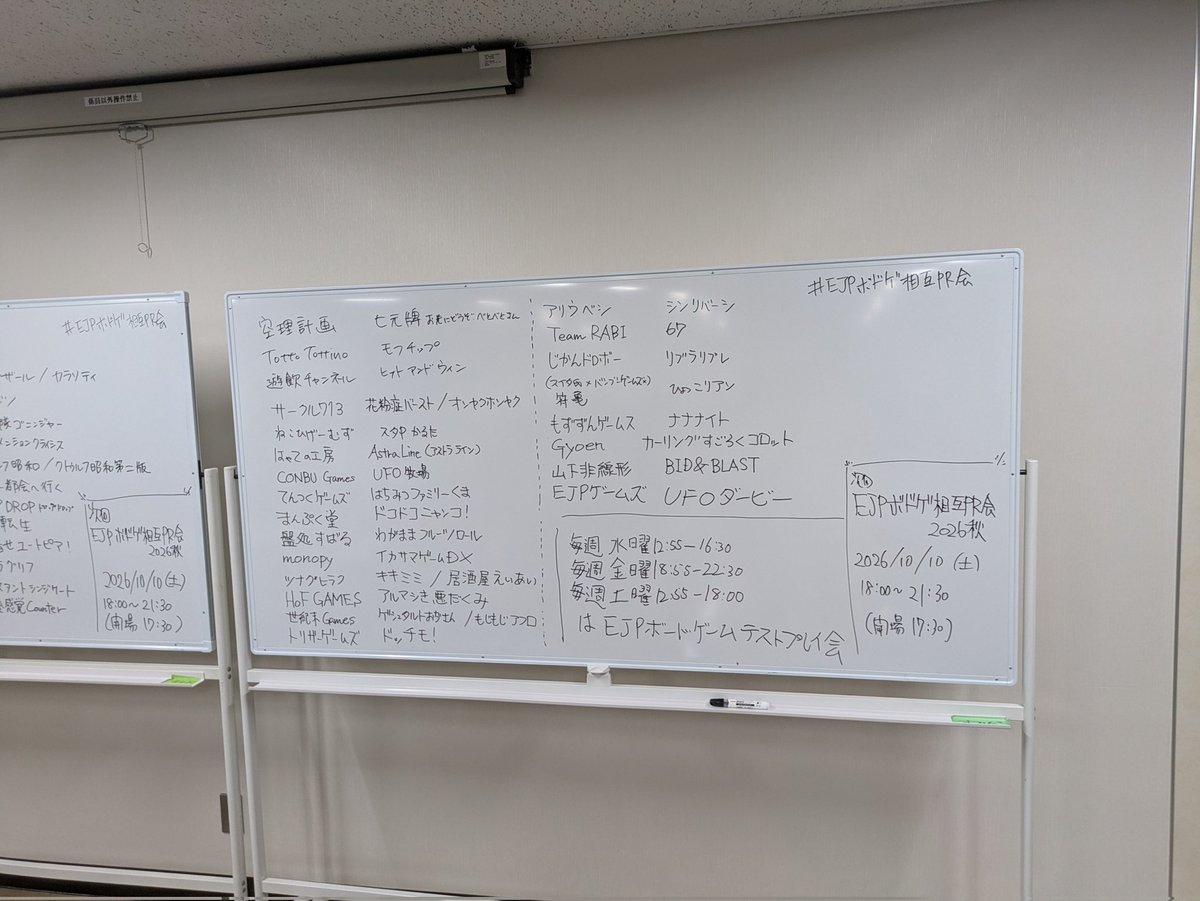 係員以外操作禁止
#EJPボドゲ相互PR会
ザール / カラリティ
ゴニンジャー
メンションクライシス
昭和 / クトゥルフ昭和第二版
都会へ行く
DROP
転生
せユートピア!
グリフ
スタントシンジケート
感覚Counter
次回
EJPボドゲ相互PR会
2026秋
2026/10/10(土)
18:00〜21:30
(開場17:30)
#EJPボドゲ相互PR会
空理計画 七元牌
Totto Tottino モフチップ
遊飲チャンネル ヒットアンドウィン
サークル713 花粉症バースト/オンセンホンヤク
ねこひげーむず スタPかるた
はやての工房 AstraLine(アストラライン)
CONBU Games UFO牧場
てんつくゲームズ はちみつファミリーくま
まんぷく堂 ドコドコニャンコ!
盤処すばる わがままフルーツロール
monopy イカサマゲームDX
ツナグヒラク キキミミ / 居酒屋えいあい
HoF GAMES アルマシき悪だくみ
世紀末Games ゲシュタルトおかさん /もじもじアフロ
トリザゲームズ ドッチモ!
アリウベシ シンリバーシ
Team RABI 67
じかんドロボー リブラリプレ
(スイタ商×バンブーゲームズの)
箱亀 ひょっこりアン
もずずんゲームス ナナナイト
Gyoen カーリングすごろくコロット
山下非線形 BID&BLAST
EJPゲームズ UFOダービー
毎週 水曜 12:55-16:30
毎週 金曜 18:55-22:30
毎週 土曜 12:55-18:00
は EJPボードゲームテストプレイ会
次回
EJPボドゲ相互PR会
2026秋
2026/10/10(土)
18:00〜21:30
(開場17:30)